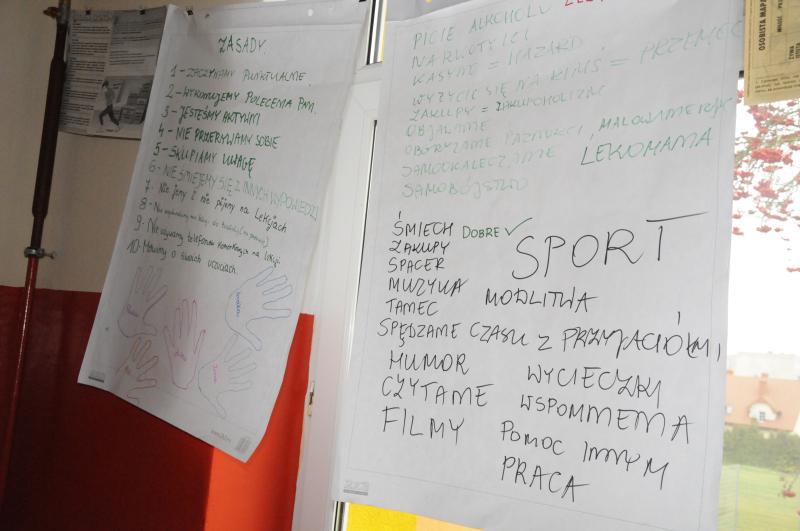 ZASADY.
1 - ZACZYNAMY PUNKTUALNIE.
2 - WYKONUJEMY POLECENIA PAŃ.
3 - JESTEŚMY AKTYWNI
4 - NIE PRZERYWAMY SOBIE
5 - SKUPIAMY UWAGĘ
6 - NIE ŚMIEJEMY SIĘ Z INNYCH WYPOWIEDZI
7. Nie jemy i nie pijemy na Lekcjach
8 - Nie
9 - Nie używamy telefonów komórkowych na lekcji
10 - Mówimy o swoich uczuciach.
PICIE ALKOHOLU
NARKOTYKI
KASYNO = HAZARD
WYŻYCIE SIĘ NA KIMŚ = PRZEMOC
ZAKUPY = ZAKUPOHOLIZM
OBJADANIE
OBGRYZANIE PAZNOKCI, MALOWANIE
SAMOOKALECZANIE LEKOMANIA
SAMOBÓJSTWO
ŚMIECH DOBRE ✓
ZAKUPY SPORT
SPACER
MUZYKA MODLITWA
TANIEC
SPĘDZANIE CZASU Z PRZYJACIÓŁMI
HUMOR WYCIECZKI
CZYTANIE WSPOMNIENIA
FILMY POMOC INNYM
PRACA
OSOBISTA MAPA